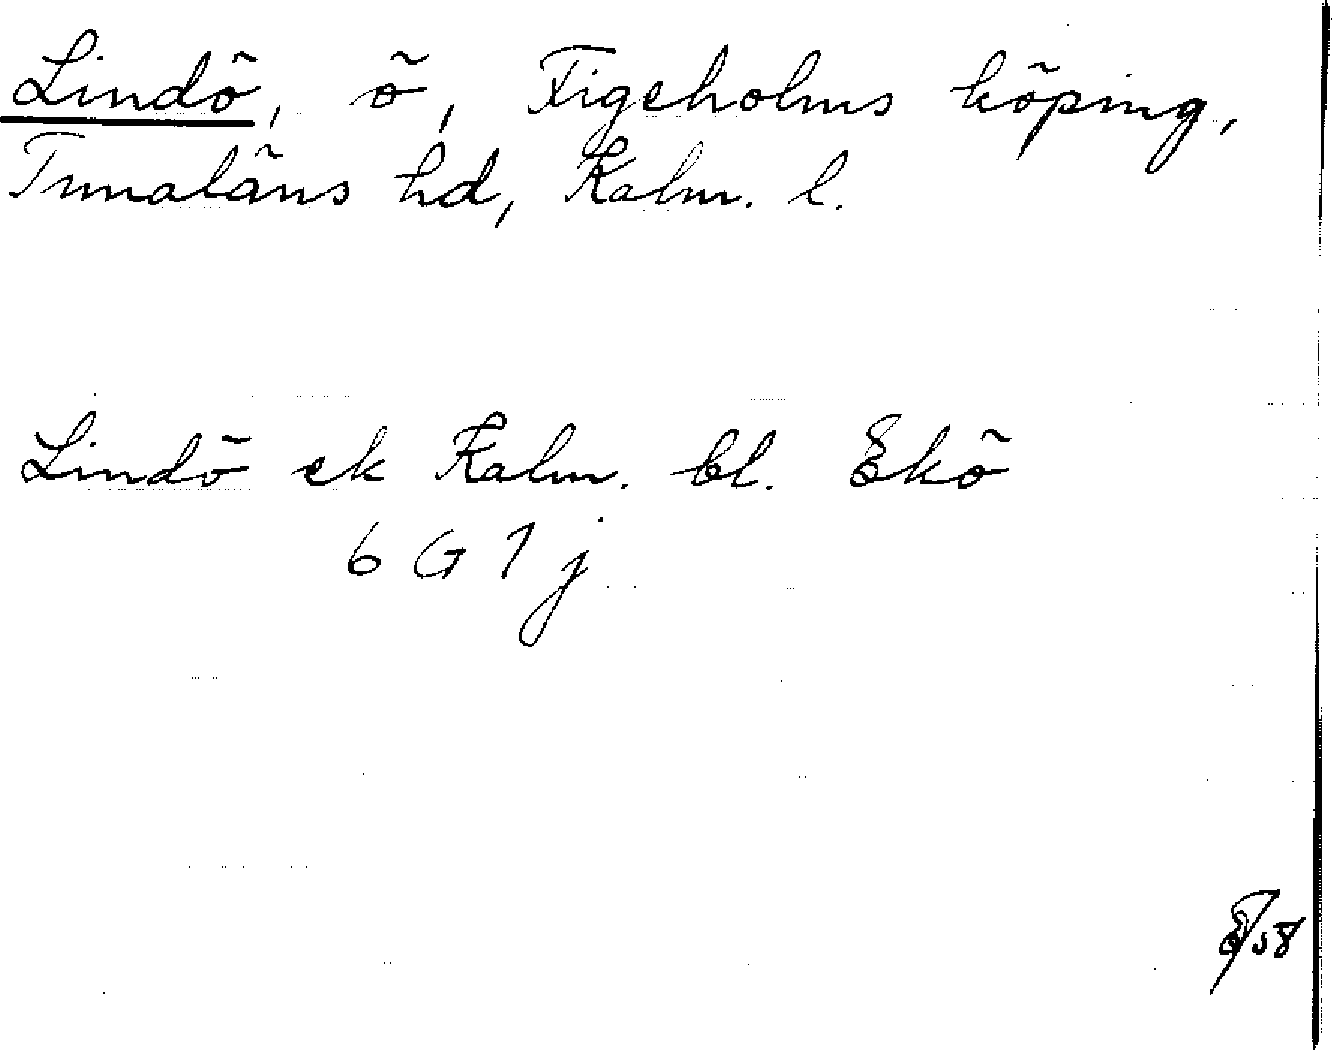 Lindö, ö, Figeholms köping,
Tunaläns hd, Kalm. l.
Lindö ek Kalm. bl. Ekö
6 G 1 j